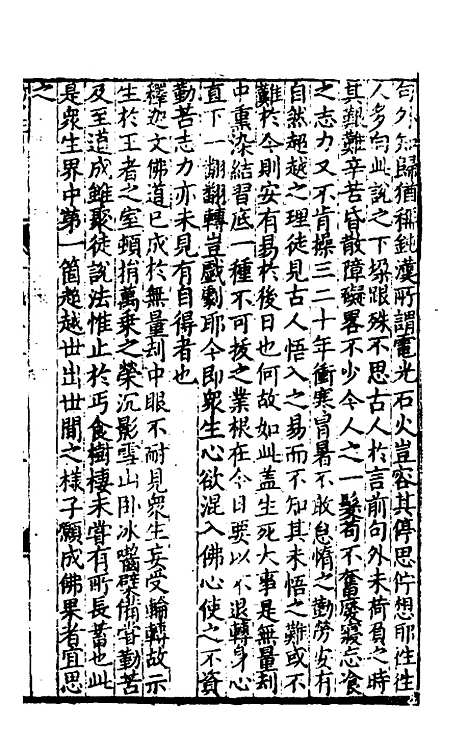 句外知歸猶稱鈍漢所謂電光石火豈容其停思佇想耶徃徃
人多向此說之下垜跟殊不思古人於言前句外未荷負之時
其艱難辛苦昏散障礙畧不少今人之一髮苟不奮廢寢忘飡
之志力又不肯操三二十年衝寒冒暑不敢怠惰之勤勞安有
自然超越之理徒見古人悟入之易而不知其未悟之難或不
難於今則安有易於後日也何故如此蓋生死大事是無量刦
中重染結習底一種不可拔之業根在今日要以不退轉身心
直下一翻翻轉豈戲劇耶今即衆生心欲混入佛心使之不資
勤苦志力亦未見有自得者也
釋迦文佛道已成於無量刦中眼不耐見衆生妄受輪轉故示
生於王者之室頓捐萬乗之榮沉影雪山卧冰嚙檗備甞勤苦
及至道成雖聚徒說法惟止於丐食樹棲未嘗有所長蓄也此
是衆生界中第一箇超越世出世間之樣子願成佛果者宜思
之